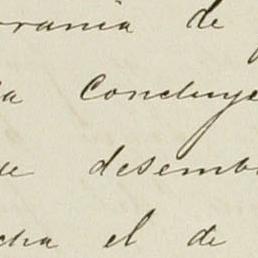 orania de
ia concluye
de desemb
cha el de